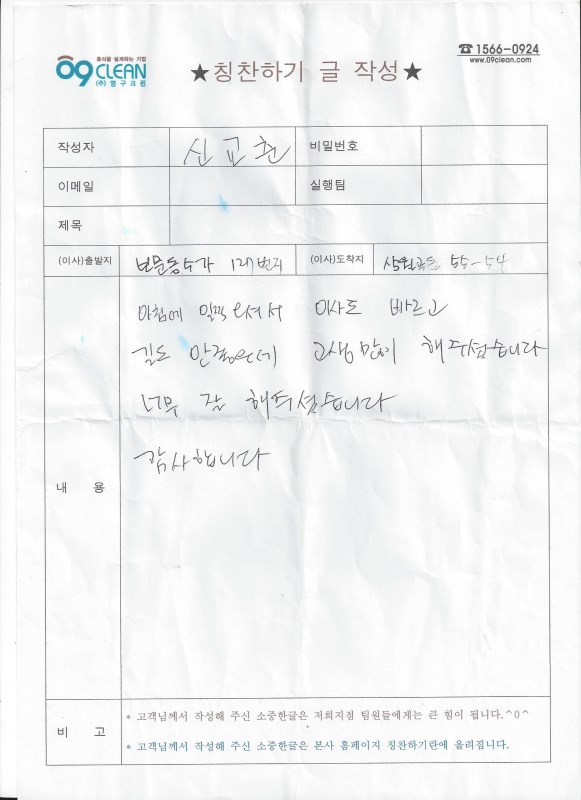 휴식을 설계하는 기업
09 CLEAN
(주)영구크린
★칭찬하기 글 작성★
☎1566-0924
www.09clean.com
작성자 신교환 비밀번호
이메일 실행팀
제목
(이사)출발지 보문동 5가 127번지 (이사)도착지 상월곡동 55-54
아침에 일찍 오셔서 이사도 빠르고
길도 안좋은데 고생 많이 해주셨습니다
너무 잘 해주셨습니다
감사합니다
내 용
비 고
* 고객님께서 작성해 주신 소중한글은 저희지점 팀원들에게는 큰 힘이 됩니다.^0^
* 고객님께서 작성해 주신 소중한글은 본사 홈페이지 칭찬하기란에 올려집니다.